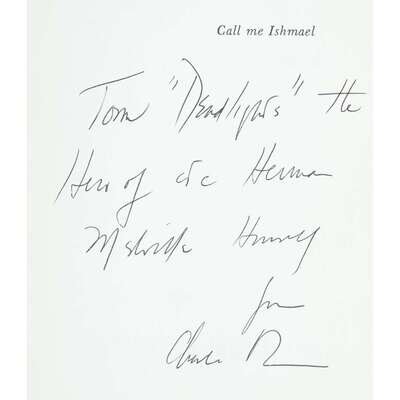 Call me Ishmael
Tom "Deadlights" the
Hero of
Herman
Melville Himself
from
Charles